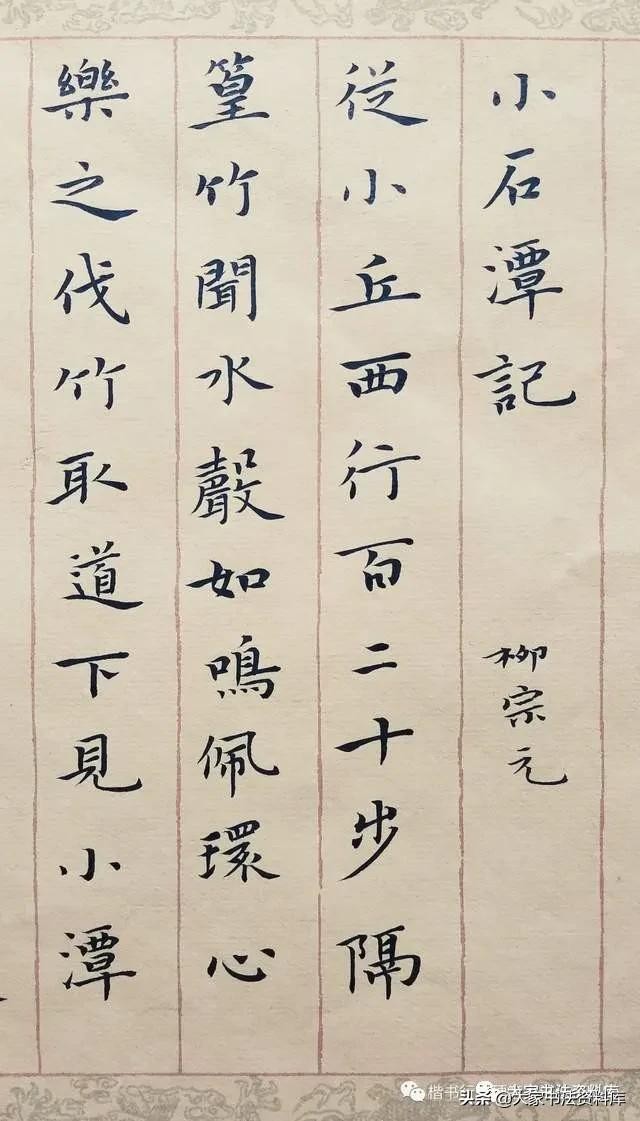 小石潭記
柳宗元
從小丘西行百二十步隔
篁竹聞水聲如鳴佩環心
樂之伐竹取道下見小潭
头条@大家书法资料库